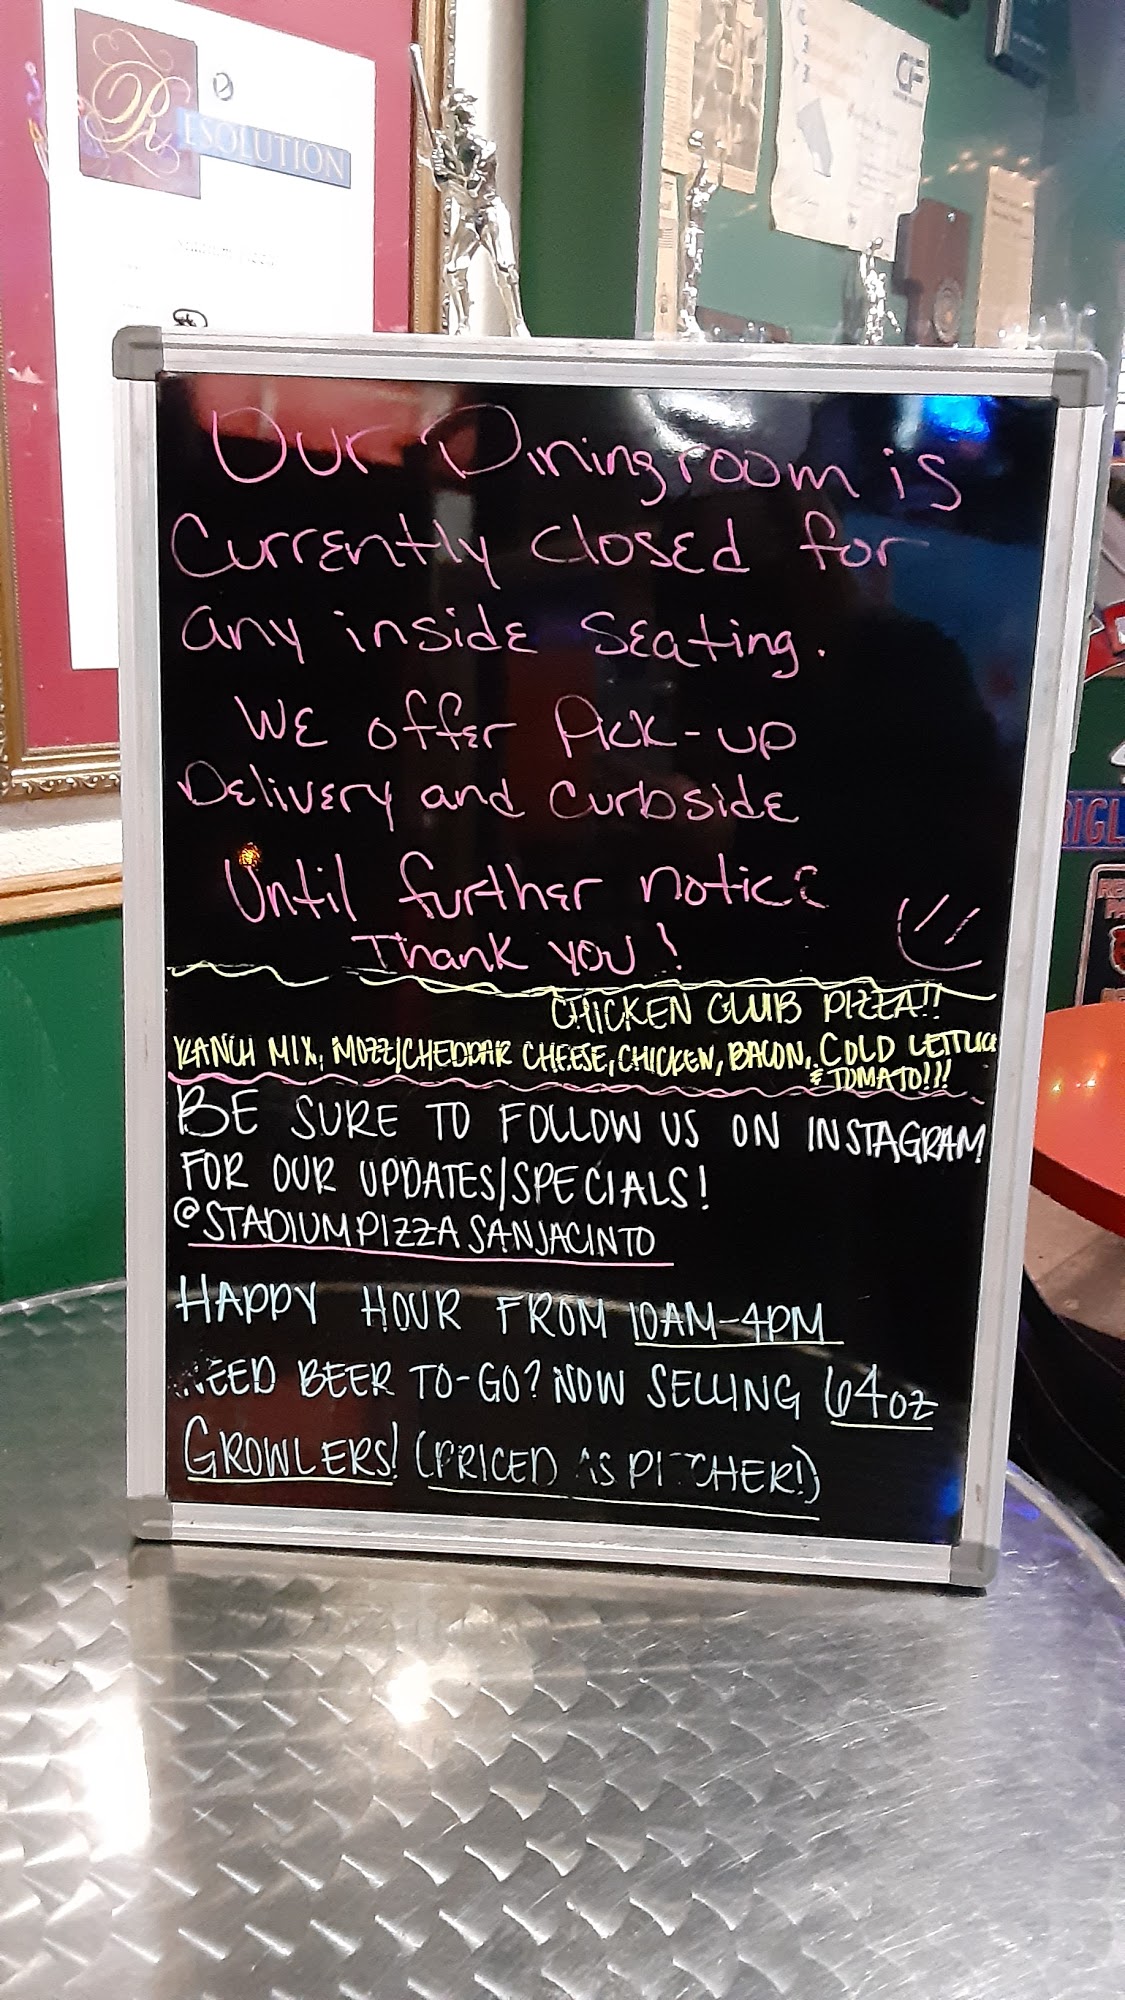 RESOLUTION
CF
Our Diningroom is
Currently closed for
any inside seating.
We offer Pick-up
Delivery and curbside
Until further notice
Thank you!
CHICKEN CLUB PIZZA!!
RANCH MIX, MOZZ/CHEDDAR CHEESE, CHICKEN, BACON, COLD LETTUCE
& TOMATO!!!
BE SURE TO FOLLOW US ON INSTAGRAM
FOR OUR UPDATES/SPECIALS!
@STADIUMPIZZASANJACINTO
HAPPY HOUR FROM 10AM-4PM
NEED BEER TO-GO? NOW SELLING 64oz
GROWLERS! (PRICED AS PITCHER!)